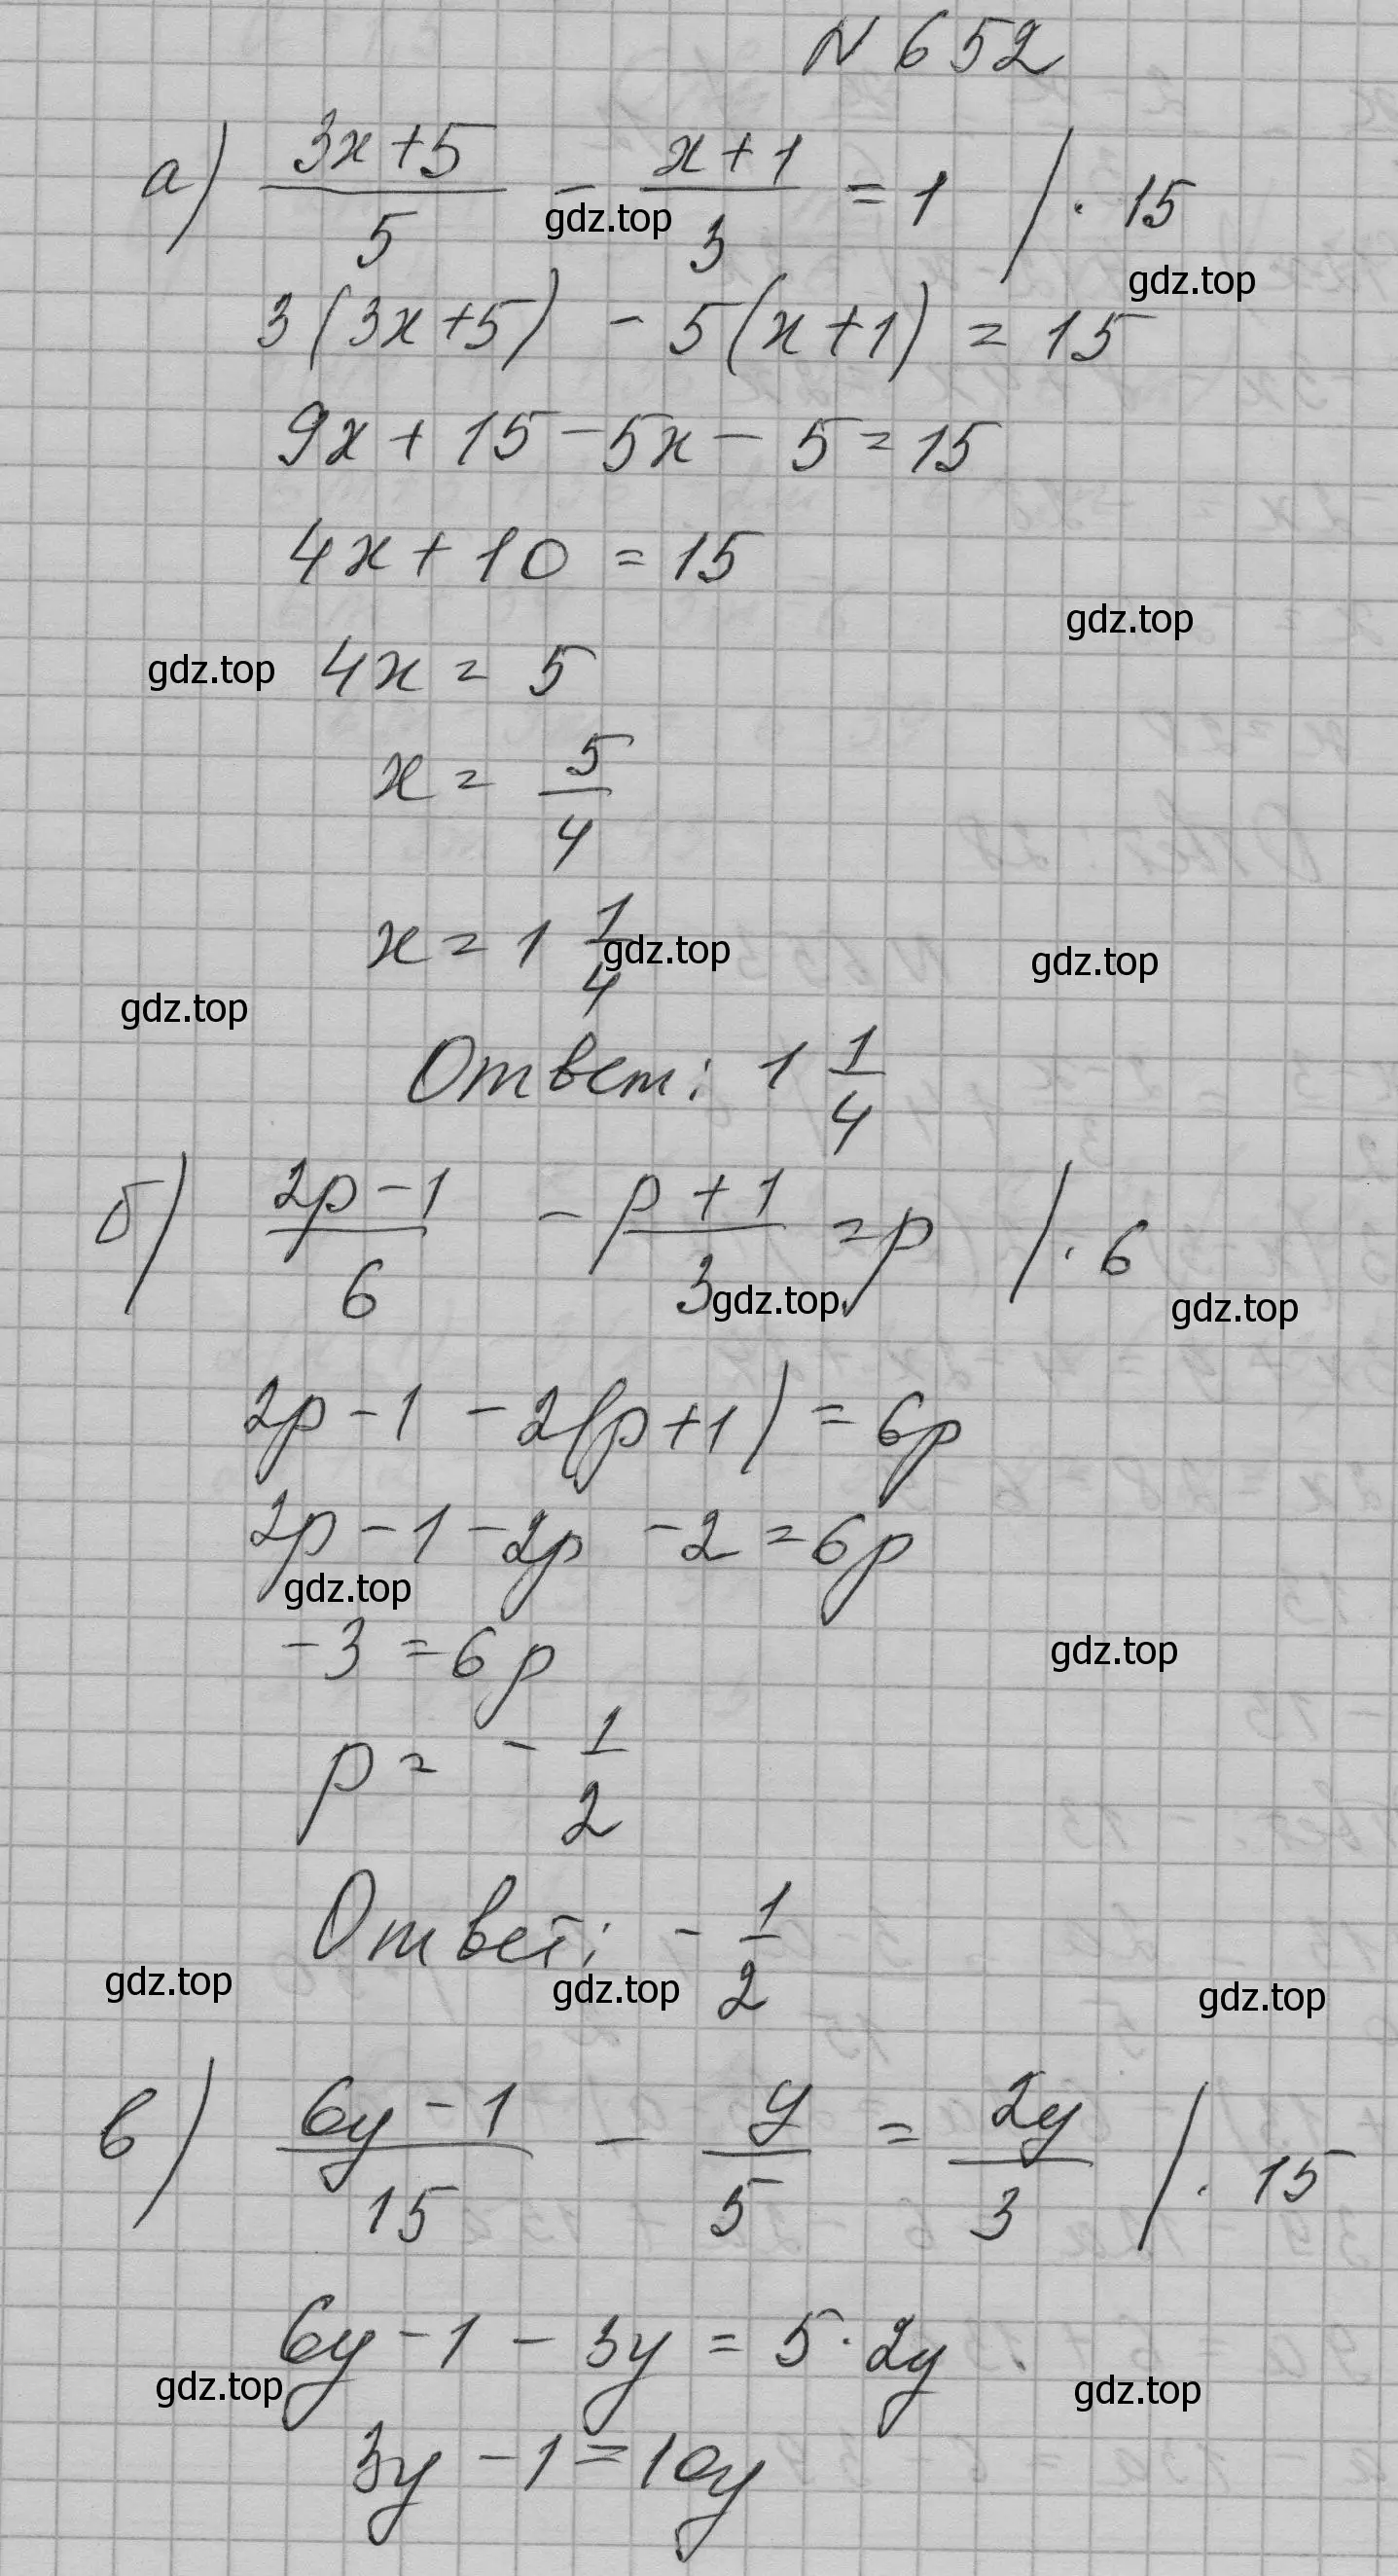 N 652
а) (3x+5)/5 - (x+1)/3 = 1 / · 15
gdz.top
gdz.top
3(3x+5) - 5(x+1) = 15
9x + 15 - 5x - 5 = 15
4x + 10 = 15
gdz.top
gdz.top 4x = 5
x = 5/4
x = 1 1/4
gdz.top gdz.top
gdz.top
Ответ: 1 1/4
б) (2p-1)/6 - (p+1)/3 = p / · 6
gdz.top gdz.top
2p - 1 - 2(p+1) = 6p
2p - 1 - 2p - 2 = 6p
gdz.top
-3 = 6p
gdz.top
p = - 1/2
Ответ: - 1/2
gdz.top gdz.top gdz.top
в) (6y-1)/15 - y/5 = 2y/3 / · 15
6y - 1 - 3y = 5 · 2y
gdz.top gdz.top
3y - 1 = 10y